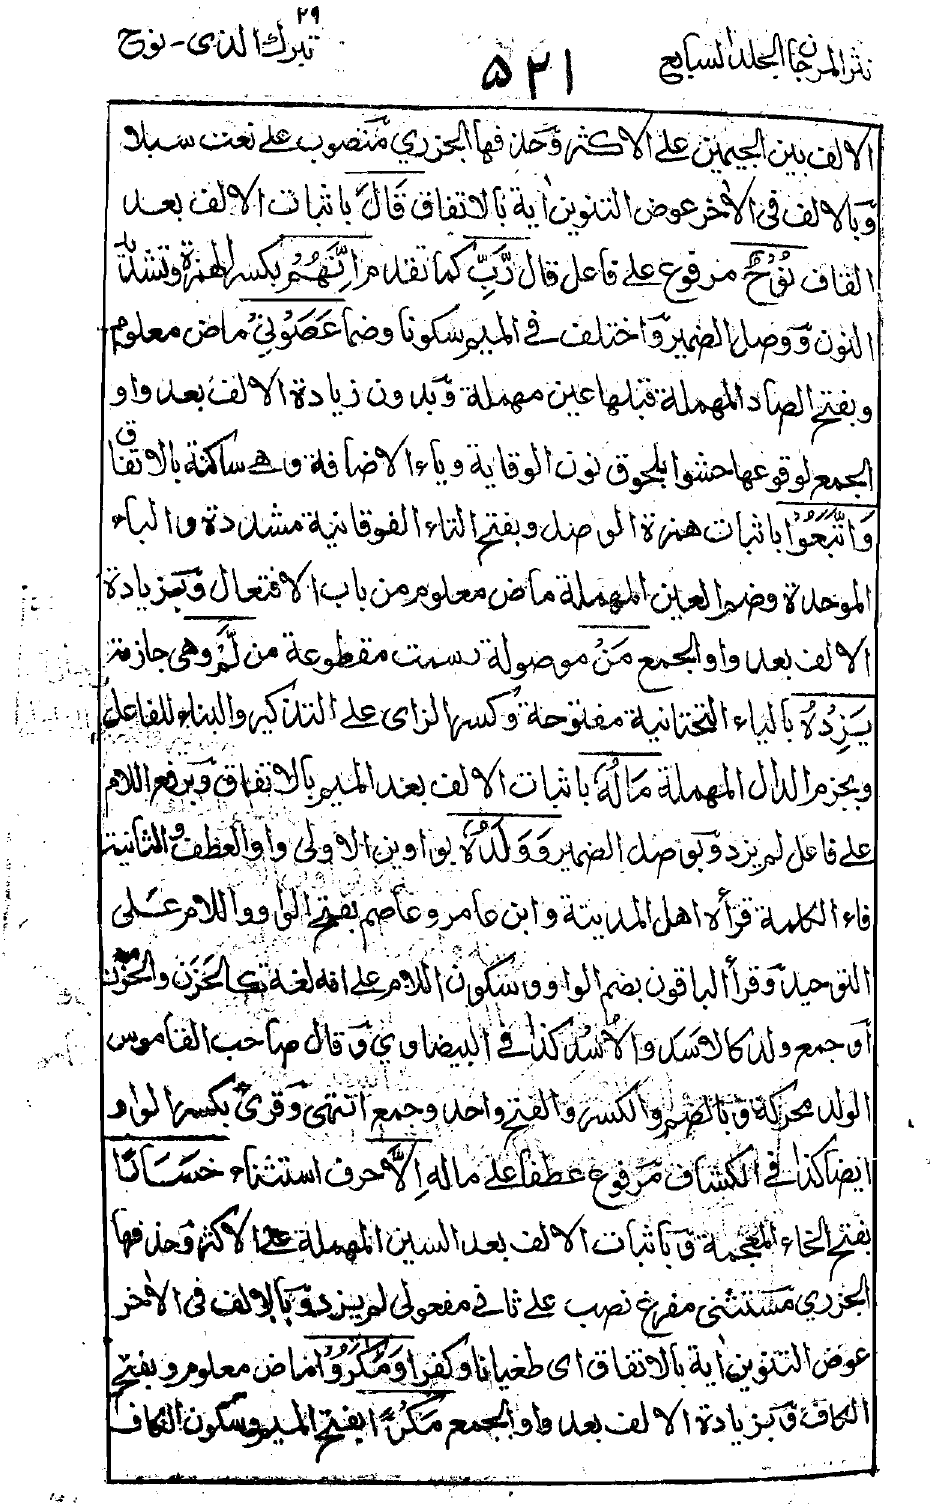 نثر المرجان المجلد السابع
٥٢١
تبرك الذى ٢٩ - نوح
الالف بين الجيمين على الاكثر وَحذفها الجزري مَنصوب على نعت سبلا
وَبالالف فى الاٰخر عوض التنوين اٰية بالاتفاق قَالَ باثبات الالف بعد
القاف نُوْحٌ مرفوع على فاعل قال رَّبِّ كما تقدم اِنَّهُمْ بكسر الهمزة وتشديد
النون وَوصل الضمير وَاختلف فى الميم سكونا وضما عَصَوْنِيْ ماض معلوم
وبفتح الصاد المهملة قبلها عين مهملة وَبدون زيادة الالف بعد واو
الجمع لوقوعها حشوا بلحوق نون الوقاية وياء الاضافة وهي ساكنة بالاتفاق
وَاتَّبَعُوْا باثبات همزة الوصل وبفتح التاء الفوقانية مشددة والباء
الموحدة وضم العين المهملة ماض معلوم من باب الافتعال وَبزيادة
الالف بعد واو الجمع مَنْ موصولة رسمت مقطوعة من لَّمْ وهى جازمة
يَزِدْهُ بالياء التحتانية مفتوحة وَكسر الزاى على التذكير والبناء للفاعل
وبجزم الدال المهملة مَالُهٗ باثبات الالف بعد الميم بالاتفاق وَبرفع اللام
على فاعل لم يزد وَبوصل الضمير وَوَلَدُهٗ بواوين الاولى واو العطف والثانية
فاء الكلمة قرأه اهل المدينة وابن عامر وعاصم بفتح الواو واللام على
التوحيد وَقرأ الباقون بضم الواو وسكون اللام على انه لغة كالحَزَن والحُزْن
اَو جمع ولد كالاَسَد والاُسْد كذا فى البيضاوي وَقال صاحب القاموس
الولد محركة وَبالضم والكسر والفتح واحد وجمع انتهى وَقرئ بكسر الواو
ايضا كذا فى الكشاف مَرفوع عطفا على ماله اِلَّا حرف استثناء خَسَارًا
بفتح الخاء المعجمة وَباثبات الالف بعد السين المهملة على الاكثر وَحذفها
الجزري مَستثنى مفرغ نصب على ثانى مفعولى لم يزد وَبالالف فى الاٰخر
عوض التنوين اٰية بالاتفاق اى طغيانا وكفرا وَمَكَرُوْا ماض معلوم وبفتح
الكاف وَبزيادة الالف بعد واو الجمع مَكْرًا بفتح الميم وسكون الكاف